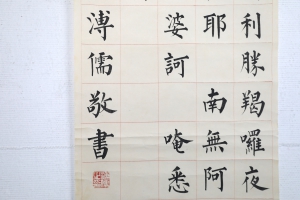 利勝羯囉夜
耶南無阿
婆訶唵悉
溥儒敬書